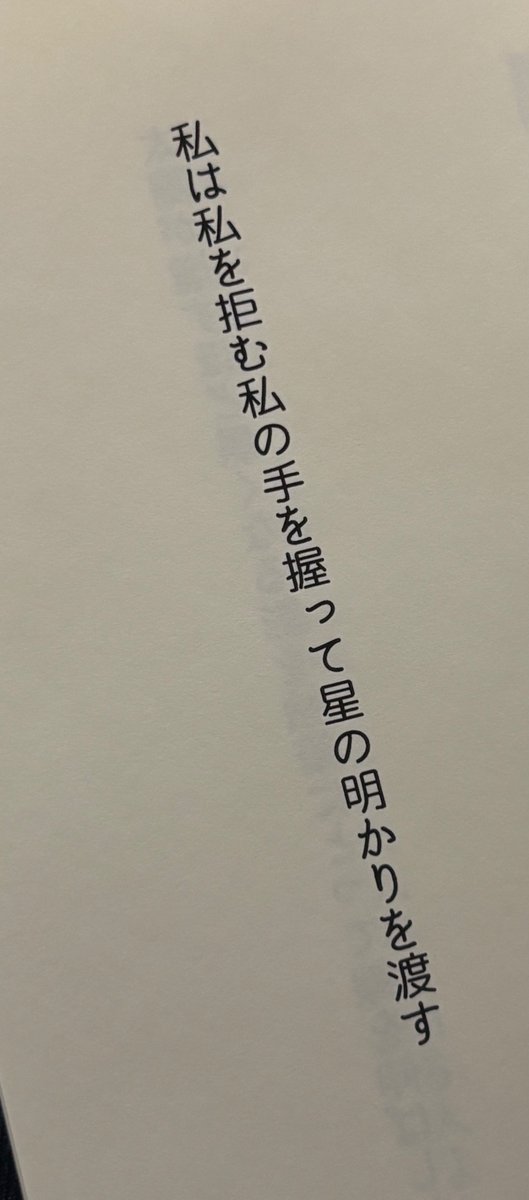 私は私を拒む私の手を握って星の明かりを渡す